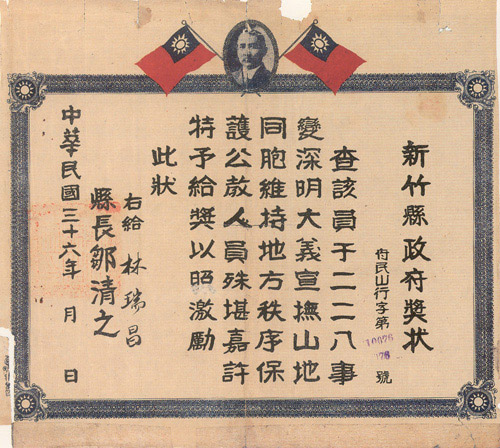 新竹縣政府獎狀
府民山行字第號
查該員于二二八事
變深明大義宣撫山地
同胞維持地方秩序保
護公教人員殊堪嘉許
特予給獎以昭激勵
此狀
右給 林瑞昌
縣長鄒清之
中華民國三十六年 月 日